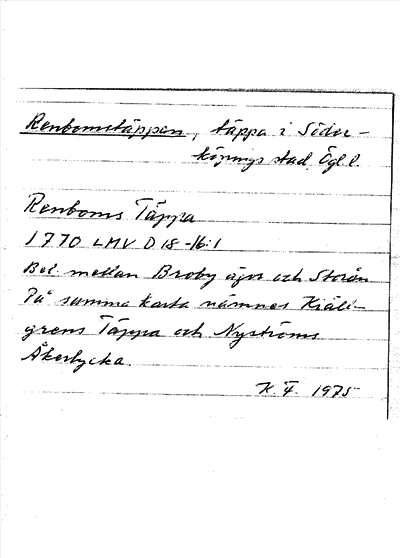 Renbomstäppan, täppa i Söder-
köpings stad, Ögl l.
Renboms Täppa
1770 LMV D 18-16:1
Bel. mellan Broby ägor och Storån
På samma karta nämnes Kiäll-
grens Täppa och Nyströms
Åkerlycka.
1975